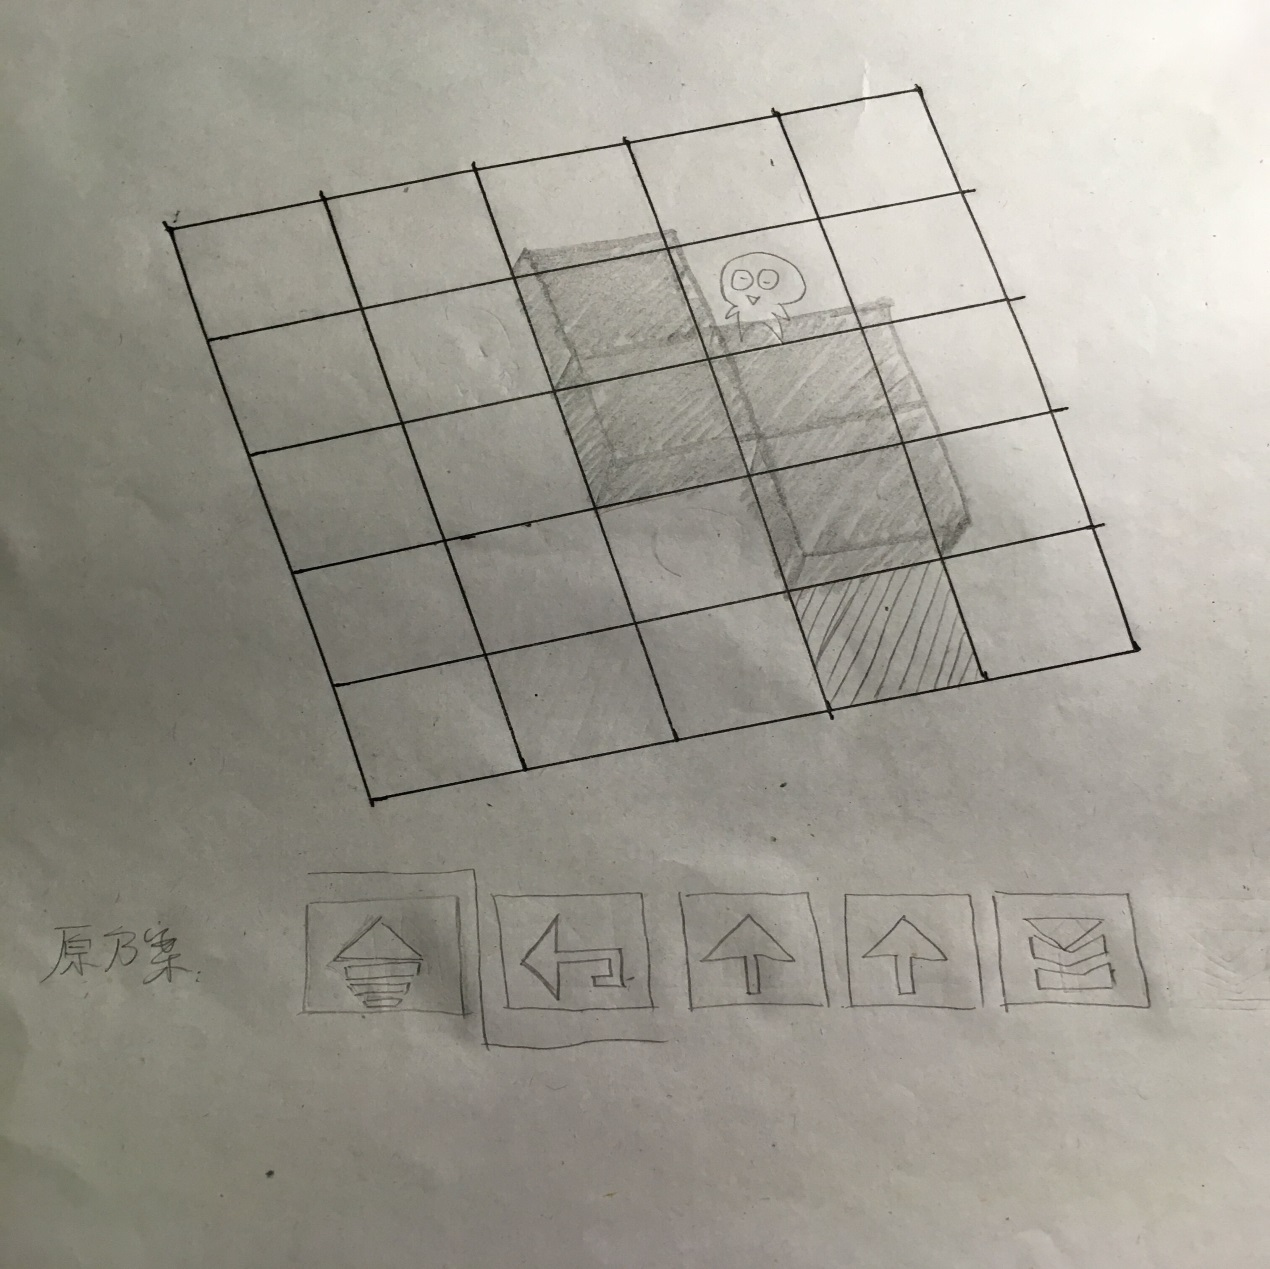 原方案.